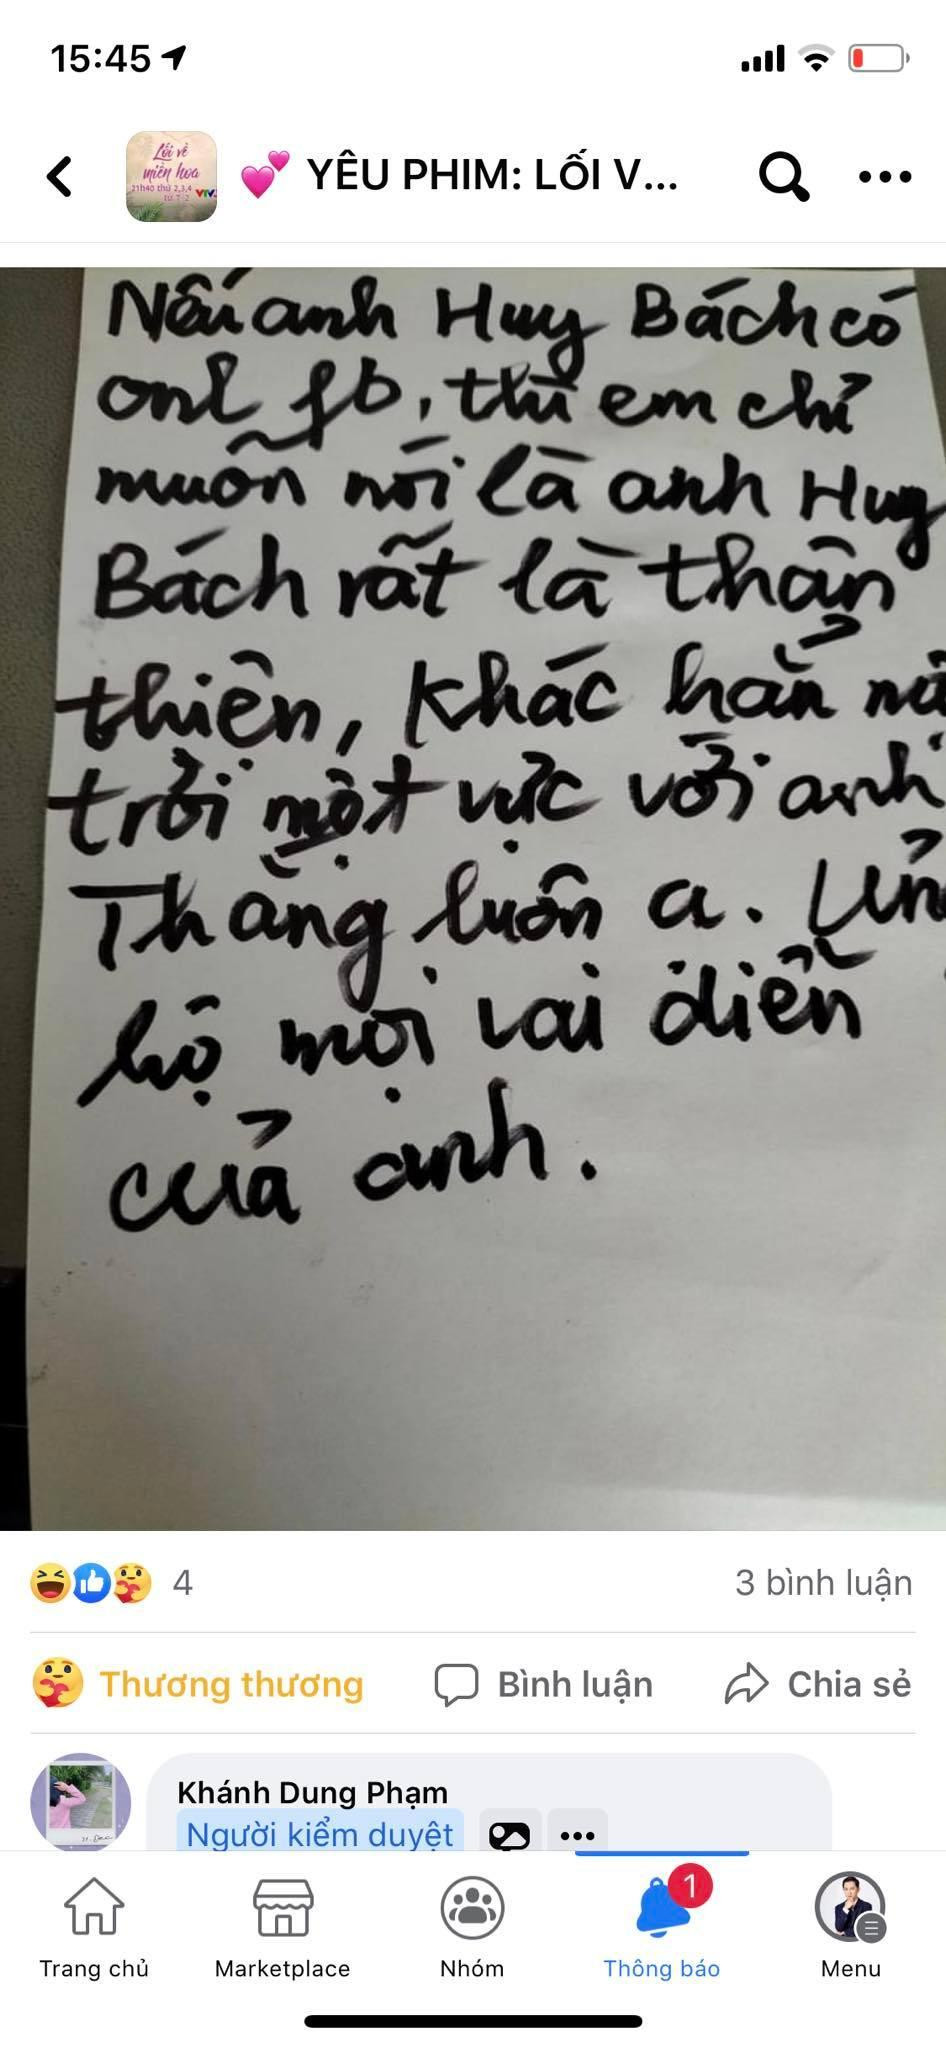 15:45
Lối về
miền hoa
21h40 thứ 2,3,4
VTV
💕 YÊU PHIM: LỐI V...
Nếu anh Huy Bách có
onl fb, thì em chỉ
muốn nói là anh Huy
Bách rất là thân
thiện, khác hẳn
trời một vực với anh
Thắng luôn ạ. Ủn
hộ mọi vai diễn
của anh.
4
3 bình luận
Thương thương
Bình luận
Chia sẻ
Khánh Dung Phạm
Người kiểm duyệt
1
Trang chủ
Marketplace
Nhóm
Thông báo
Menu